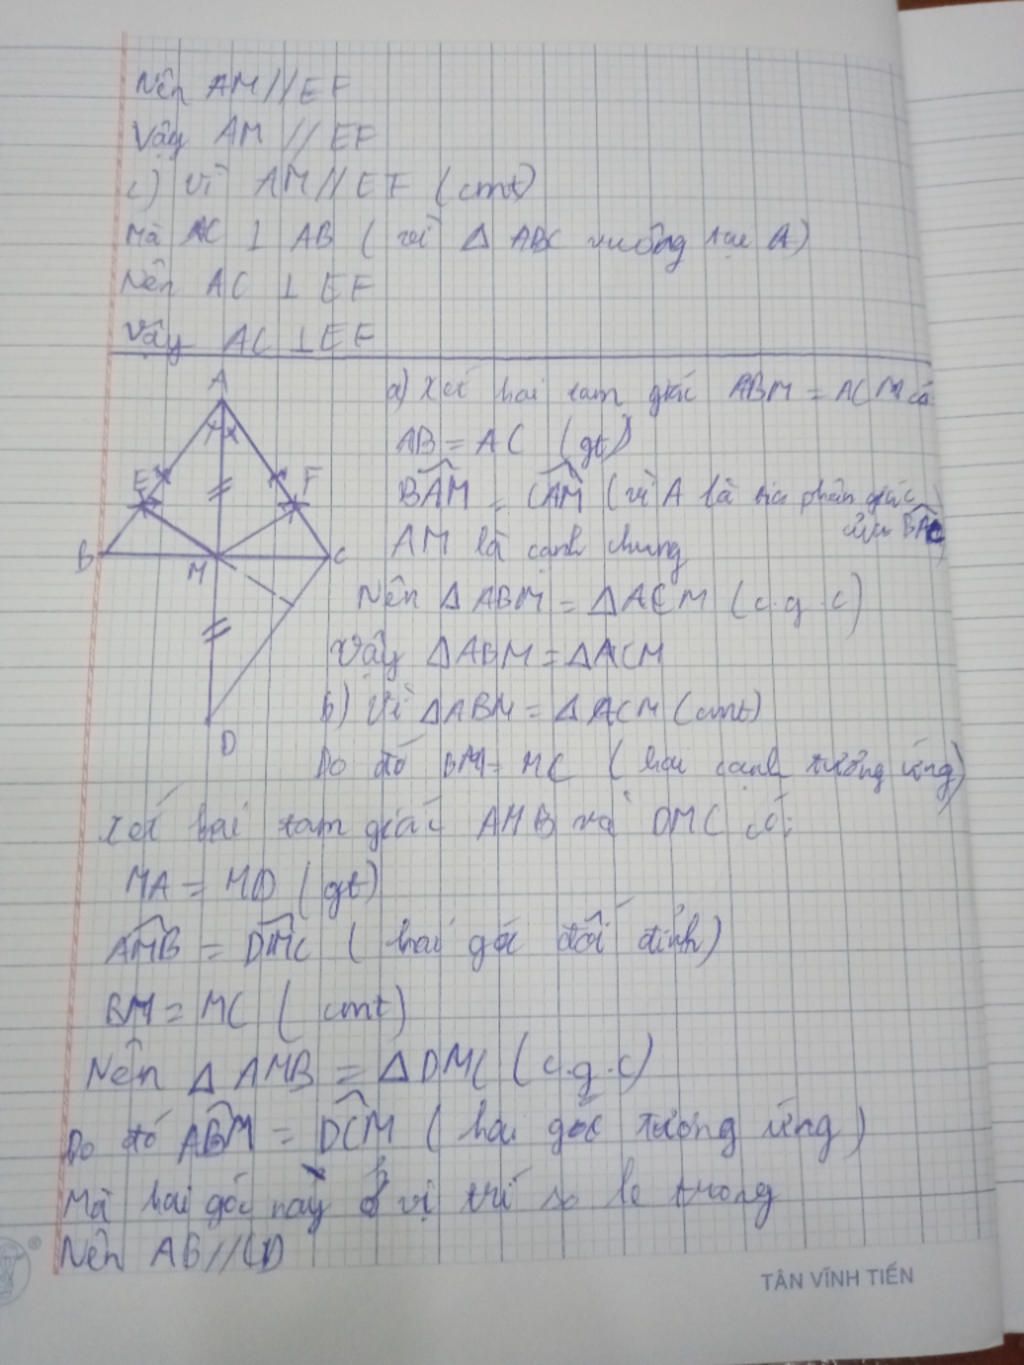 Nên AM//EF
Vậy AM // EF
c) Vì AM//EF (cmt)
Mà AC ⊥ AB ( vì Δ ABC vuông tại A)
Nên AC ⊥ EF
Vậy AC ⊥ EF
A
E
F
B
M
C
D
a) Xét hai tam giác ABM = ACM có
AB = AC (gt)
BAM = CAM ( vì A là tia phân giác
của BAC)
AM là cạnh chung
Nên ΔABM = ΔACM (c.g.c)
Vậy ΔABM = ΔACM
b) Vì ΔABM = ΔACM (cmt)
Do đó BM = MC ( hai cạnh tương ứng)
Xét hai tam giác AMB và DMC có:
MA = MD (gt)
AMB = DMC ( hai góc đối đỉnh)
BM = MC ( cmt)
Nên Δ AMB = ΔDMC (c.g.c)
Do đó ABM = DCM ( hai góc tương ứng)
Mà hai góc này ở vị trí so le trong
Nên AB//CD
TÂN VĨNH TIẾN